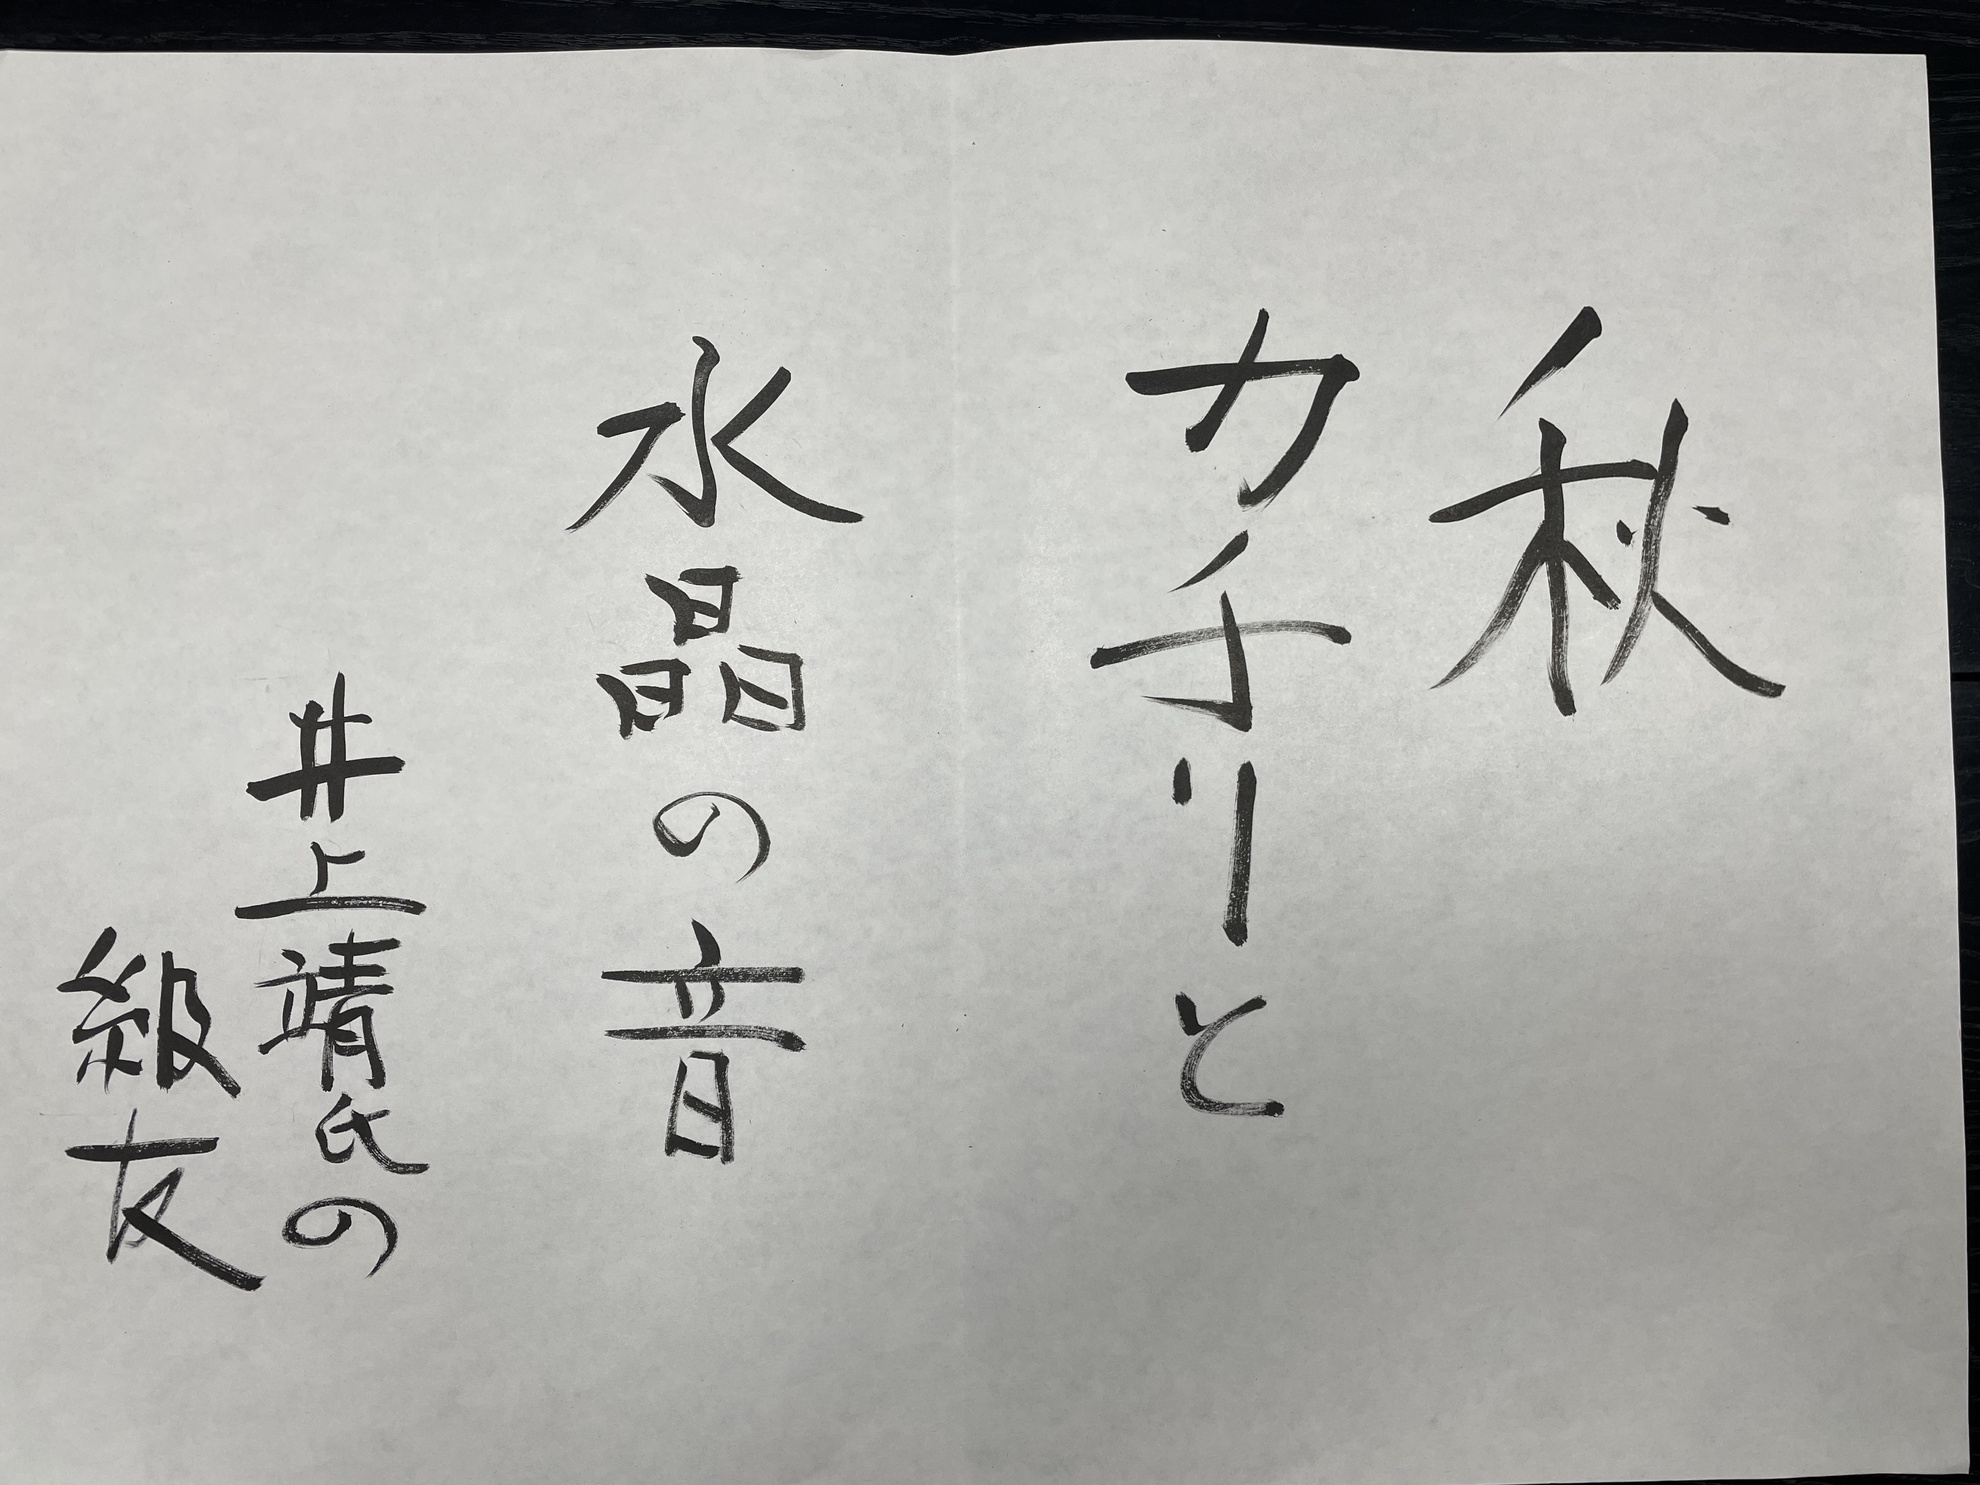 秋
カチリと
水晶の音
井上靖氏の
級友